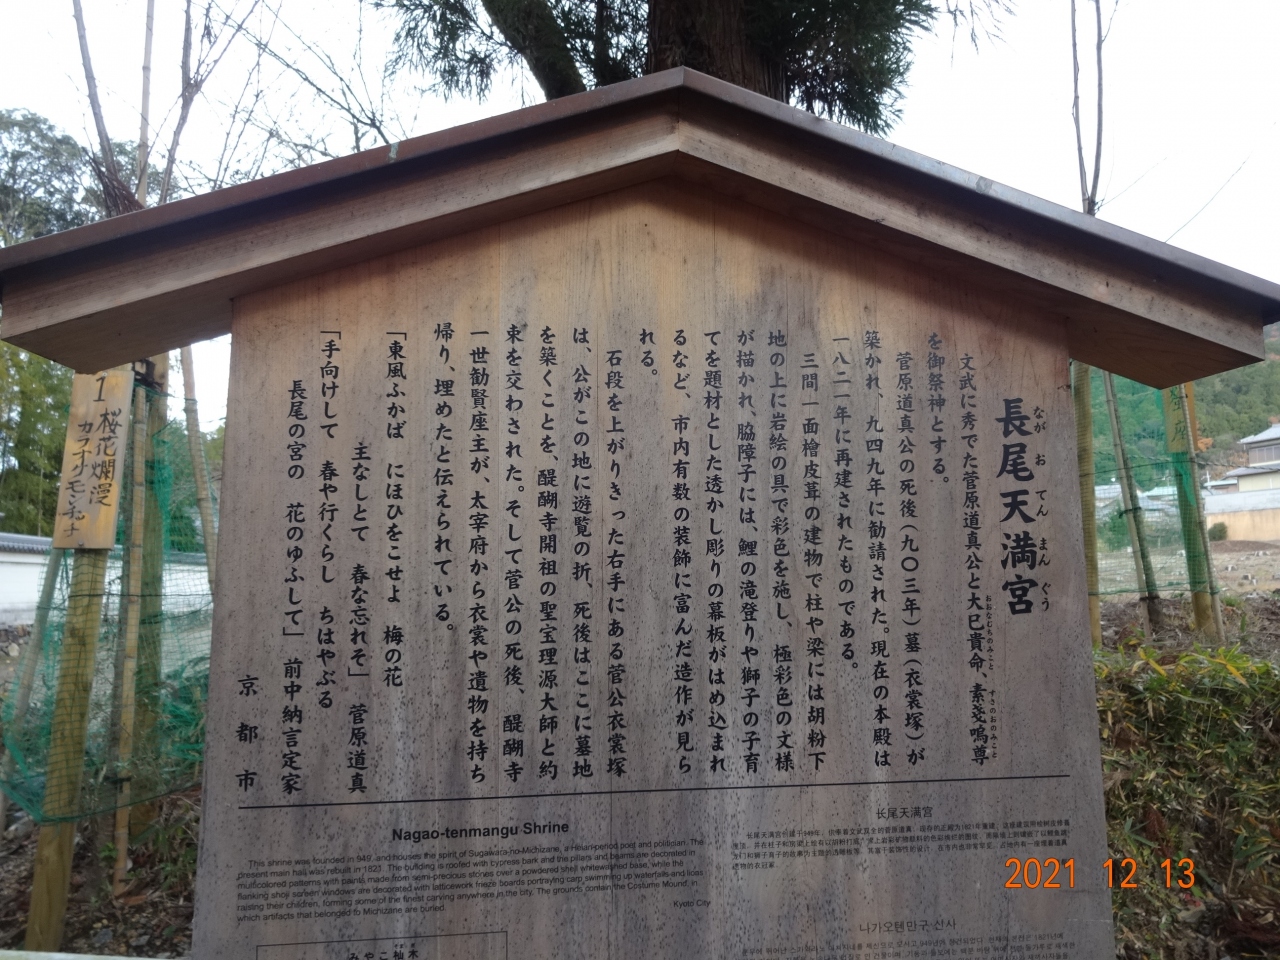 長尾天満宮
ながおてんまんぐう
文武に秀でた菅原道真公と大巳貴命、素戔嗚尊
おおなむちのみこと
すさのおのみこと
を御祭神とする。
菅原道真公の死後（九〇三年）墓（衣裳塚）が
築かれ、九四九年に勧請された。現在の本殿は
一八二一年に再建されたものである。
三間一面檜皮葺の建物で柱や梁には胡粉下
地の上に岩絵の具で彩色を施し、極彩色の文様
が描かれ、脇障子には、鯉の滝登りや獅子の子育
てを題材とした透かし彫りの幕板がはめ込まれ
るなど、市内有数の装飾に富んだ造作が見ら
れる。
石段を上がりきった右手にある菅公衣裳塚
は、公がこの地に遊覧の折、死後はここに墓地
を築くことを、醍醐寺開祖の聖宝理源大師と約
束を交わされた。そして菅公の死後、醍醐寺
一世勧賢座主が、太宰府から衣裳や遺物を持ち
帰り、埋めたと伝えられている。
「東風ふかば にほひをこせよ 梅の花
主なしとて 春な忘れそ」 菅原道真
「手向けして 春や行くらし ちはやぶる
長尾の宮の 花のゆふして」 前中納言定家
京都市
Nagao-tenmangu Shrine
This shrine was founded in 949, and houses the spirit of Sugawara-no-Michizane, a Heian-period poet and politician. The
present main hall was rebuilt in 1821. The building is roofed with cypress bark and the pillars and beams are decorated in
multicolored patterns with paints made from semi-precious stones over a powdered shell whitewashed base, while the
flanking shoji screen windows are decorated with latticework frieze boards portraying carp swimming up waterfalls and lions
raising their children, forming some of the finest carving anywhere in the city. The grounds contain the Costume Mound, in
which artifacts that belonged to Michizane are buried.
Kyoto City
长尾天满宫
나가오텐만구 신사
1 桜花爛漫
2021 12 13